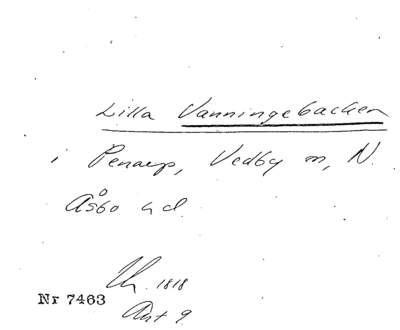 Lilla Vanningebacken
i Penarp, Vedby m, N.
Åsbo hd.
Uh. 1818
Nr 7463
Akt 9